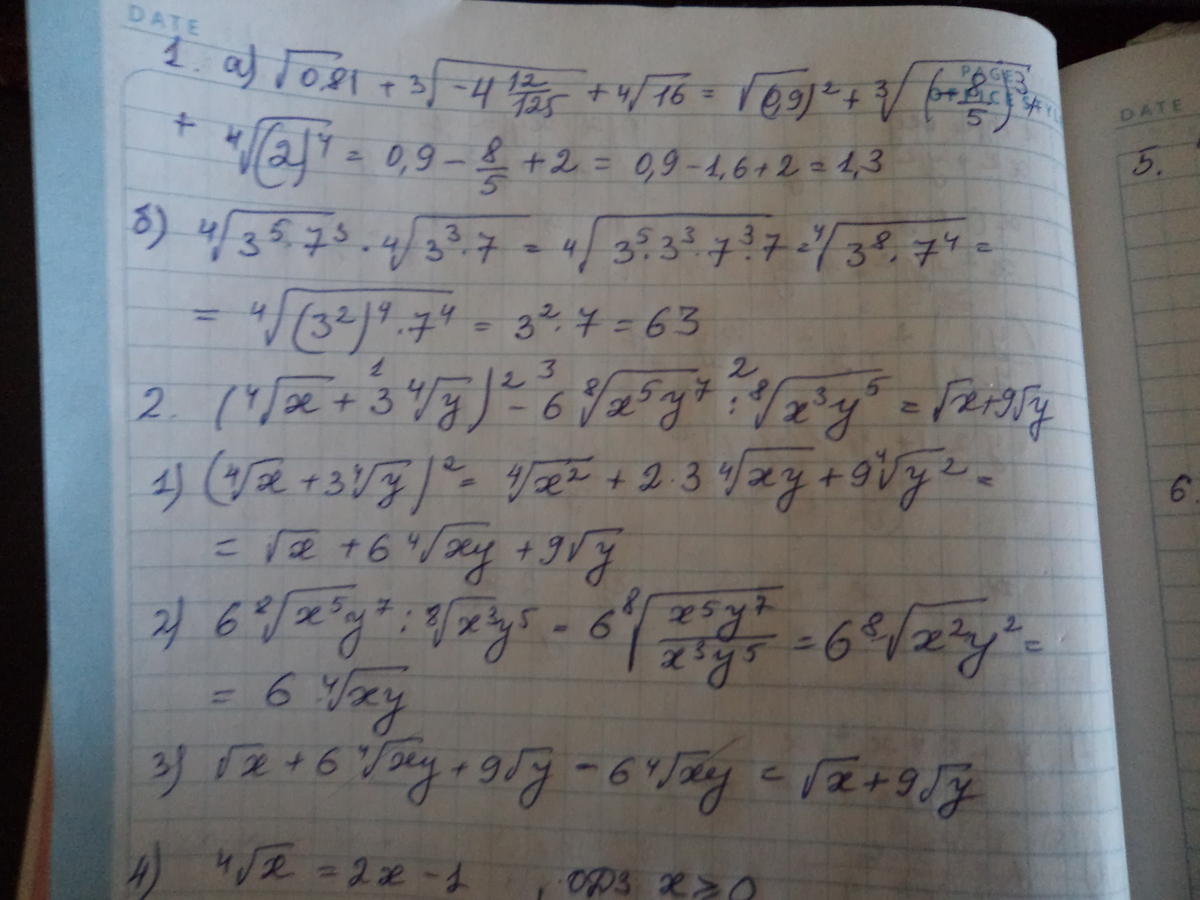 DATE
1. а) √0,81 + ³√(-4 12/125) + ⁴√16 = √(0,9)² + ³√(-8/5)³ +
+ ⁴√(2)⁴ = 0,9 - 8/5 + 2 = 0,9 - 1,6 + 2 = 1,3
б) ⁴√(3⁵·7³) · ⁴√(3³·7) = ⁴√(3⁵·3³·7³·7) = ⁴√(3⁸·7⁴) =
= ⁴√((3²)⁴·7⁴) = 3²·7 = 63
1 3 2
2. (⁴√x + 3⁴√y)² - 6⁸√(x⁵y⁷) : ⁸√(x³y⁵) = √x+9√y
1) (⁴√x + 3⁴√y)² = ⁴√x² + 2·3⁴√xy + 9⁴√y² =
= √x + 6⁴√xy + 9√y
2) 6⁸√(x⁵y⁷) : ⁸√(x³y⁵) = 6⁸√(x⁵y⁷/x³y⁵) = 6⁸√(x²y²) =
= 6⁴√xy
3) √x + 6⁴√xy + 9√y - 6⁴√xy = √x + 9√y
4) ⁴√x = 2x - 1 , ОДЗ x ≥ 0
DATE
5.
6.